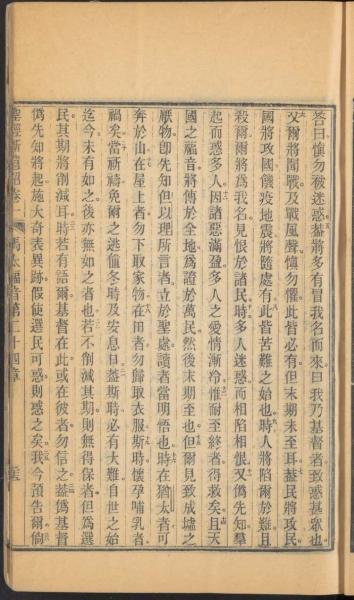 答曰愼勿被迷惑葢將多有冒我名而來曰我乃基督者致惑甚衆也
又爾將聞戰及戰風聲愼勿懼此皆必有但末期未至耳葢民將攻民
國將攻國饑疫地震將隨處有此皆苦難之始也時人將陷爾於難且
殺爾爾將爲我名見恨於諸民時多人迷惑而相陷相恨又僞先知羣
起而惑多人因諸惡滿盈多人之愛情漸冷惟耐至終者得救矣且天
國之福音將傳於全地爲證於萬民然後末期至也但爾見致成墟之
厭物卽先知但以理所言者立於聖處讀者當明悟也時在猶太者可
奔於山在屋上者勿下取家物在田者勿歸取衣服斯時懷孕哺乳者
禍矣當祈禱免爾之逃値冬時及安息日葢斯時必有大難自世之始
迄今未有如之後亦無如之者也若不削減其期則無得保者但爲選
民其期將削減耳時若有語爾基督在此或在彼者勿信之葢僞基督
僞先知將起施大奇表異跡假使選民可惑則惑之矣我今預告爾倘
聖經新遺詔卷一 馬太福音第二十四章